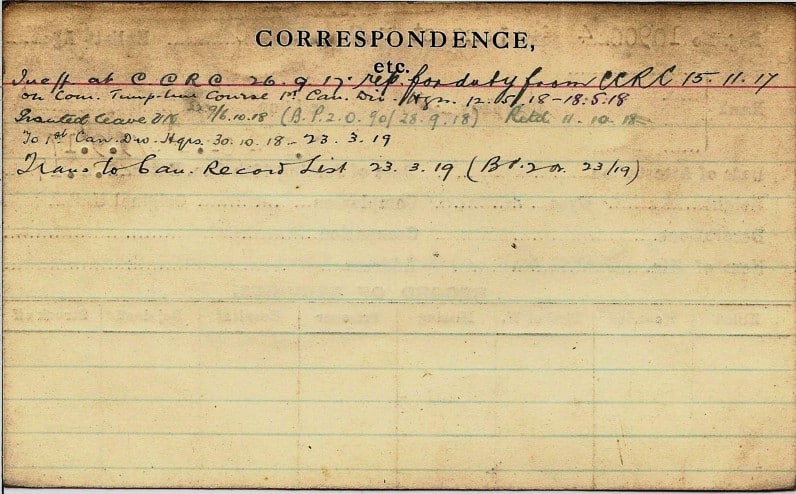 CORRESPONDENCE,
etc.
at C C R C 26. 9 17. rep. for duty from CCRC 15. 11. 17
on Com. Course 1st Can. Div. Hqrs. 12. 5. 18-18.5.18
Granted leave 10.18 (B.P.2.O. 90/28.9.18) Retd 11.10.18
To 1st Can. Div. Hqrs. 30.10.18-23.3.19
Trans to Can. Record List 23.3.19 (B P.2 Or. 23/19)